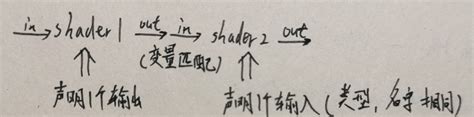 in shader1 out in shader2 out
(变量匹配)
声明1个输出 声明1个输入(类型,名字相同)